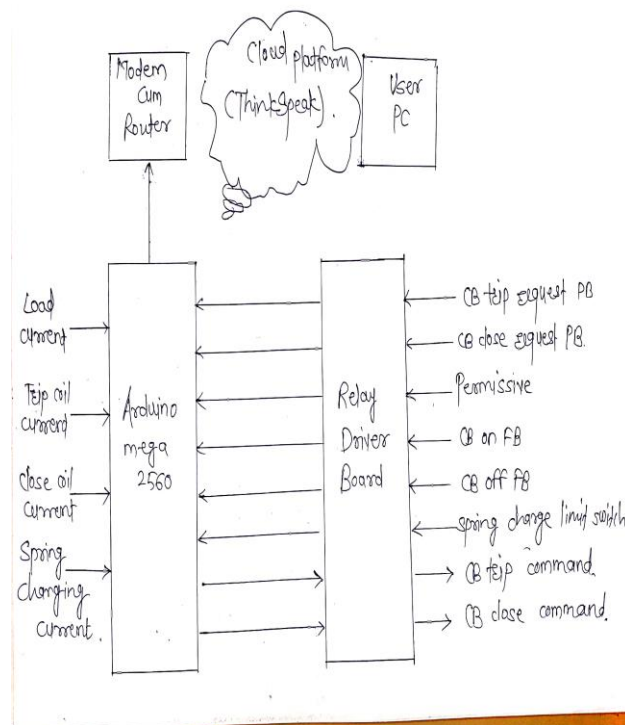 Modem
Cum
Router
Cloud platform
(ThinkSpeak).
User
PC
Load
current
Trip coil
current
close coil
current
Spring
charging
current.
Arduino
mega
2560
Relay
Driver
Board
CB trip request PB
CB close request PB.
Permissive
CB on FB
CB off FB
spring charge limit switch
CB trip command.
CB close command.